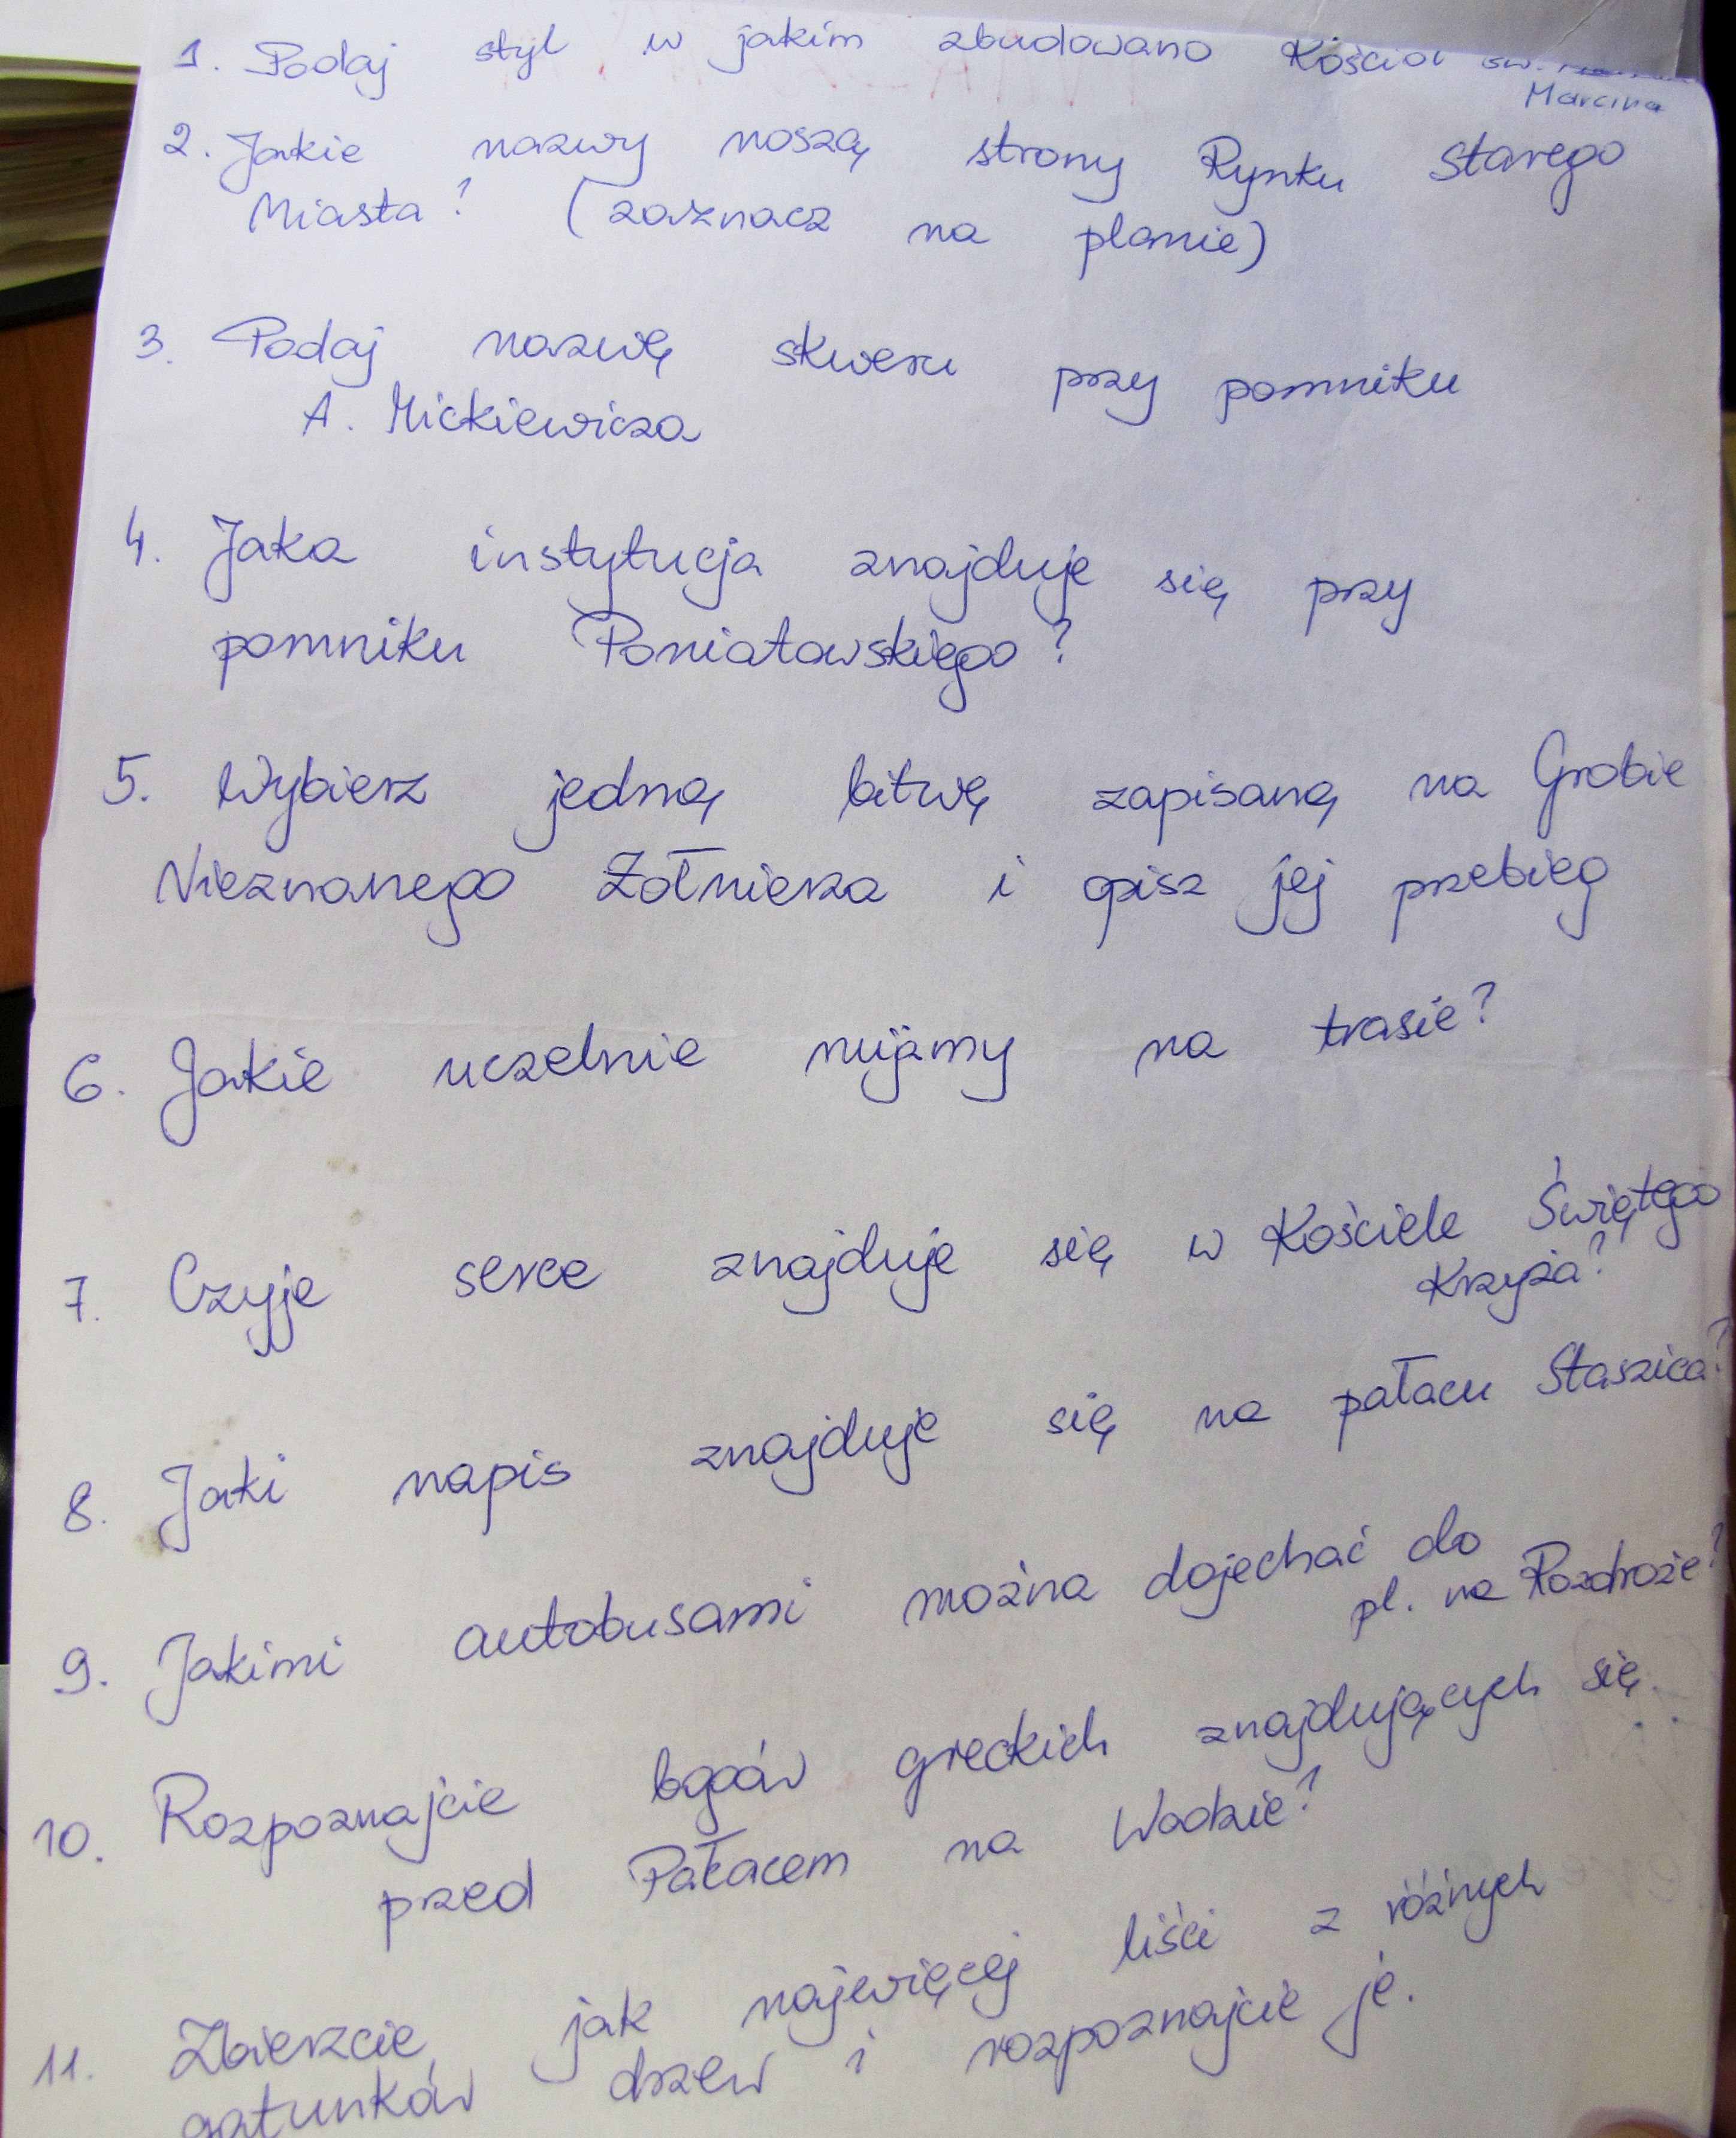 1. Podaj styl w jakim zbudowano Kościół św.
Marcina
2. Jakie nazwy noszą strony Rynku Starego
Miasta? (zaznacz na planie)
3. Podaj nazwę skweru przy pomniku
A. Mickiewicza
4. Jaka instytucja znajduje się przy
pomniku Poniatowskiego?
5. Wybierz jedną bitwę zapisaną na Grobie
Nieznanego Żołnierza i opisz jej przebieg
6. Jakie uczelnie mijamy na trasie?
7. Czyje serce znajduje się w Kościele Świętego
Krzyża?
8. Jaki napis znajduje się na pałacu Staszica?
9. Jakimi autobusami można dojechać do
pl. na Rozdroże?
10. Rozpoznajcie bogów greckich znajdujących się
przed Pałacem na Wodzie?
11. Zbierzcie jak najwięcej liści z różnych
gatunków drzew i rozpoznajcie je.